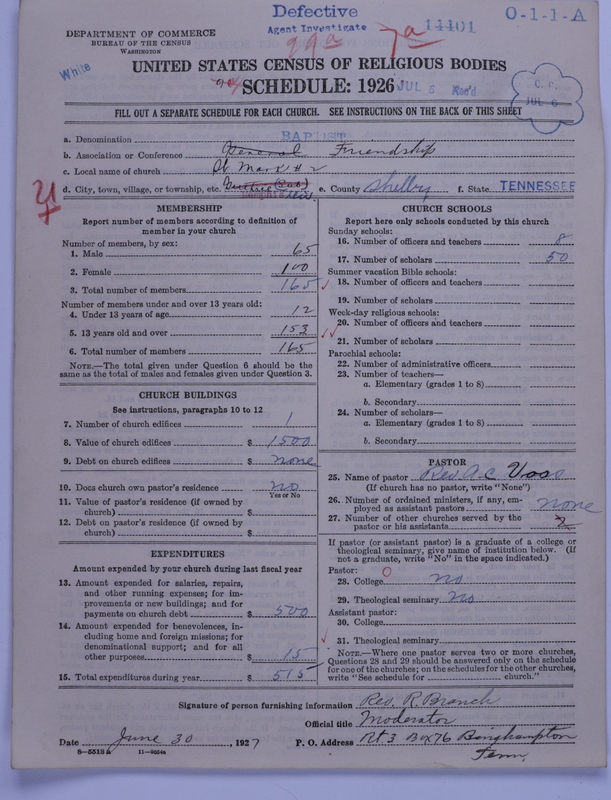 Defective
Agent Investigate
99a 7a 11101
0-1-1-A
DEPARTMENT OF COMMERCE
BUREAU OF THE CENSUS
WASHINGTON
White
UNITED STATES CENSUS OF RELIGIOUS BODIES
SCHEDULE: 1926
JUL 5 Rec'd
C. P.
JUL 6
FILL OUT A SEPARATE SCHEDULE FOR EACH CHURCH. SEE INSTRUCTIONS ON THE BACK OF THIS SHEET
a. Denomination BAPTIST
b. Association or Conference General Friendship
c. Local name of church St Mark # 2
d. City, town, village, or township, etc. e. County Shelby f. State TENNESSEE
MEMBERSHIP
Report number of members according to definition of
member in your church
Number of members, by sex:
1. Male 65
2. Female 100
3. Total number of members 165
Number of members under and over 13 years old:
4. Under 13 years of age 12
5. 13 years old and over 153
6. Total number of members 165
NOTE.—The total given under Question 6 should be
same as the total of males and females given under Question 3.
CHURCH BUILDINGS
See instructions, paragraphs 10 to 12
7. Number of church edifices 1
8. Value of church edifices $ 1500
9. Debt on church edifices $ none
10. Does church own pastor's residence no
Yes or No
11. Value of pastor's residence (if owned by
church) $
12. Debt on pastor's residence (if owned by
church) $
EXPENDITURES
Amount expended by your church during last fiscal year
13. Amount expended for salaries, repairs,
and other running expenses; for im-
provements or new buildings; and for
payments on church debt $ 500
14. Amount expended for benevolences, in-
cluding home and foreign missions; for
denominational support; and for all
other purposes $ 15
15. Total expenditures during year $ 515
CHURCH SCHOOLS
Report here only schools conducted by this church
Sunday schools:
16. Number of officers and teachers 8
17. Number of scholars 50
Summer vacation Bible schools:
18. Number of officers and teachers
19. Number of scholars
Week-day religious schools:
20. Number of officers and teachers
21. Number of scholars
Parochial schools:
22. Number of administrative officers
23. Number of teachers—
a. Elementary (grades 1 to 8)
b. Secondary
24. Number of scholars—
a. Elementary (grades 1 to 8)
b. Secondary
PASTOR
25. Name of pastor Rev A. C.
(If church has no pastor, write "None")
26. Number of ordained ministers, if any, em-
ployed as assistant pastors none
27. Number of other churches served by the
pastor or his assistants 2
If pastor (or assistant pastor) is a graduate of a college or
theological seminary, give name of institution below. (If
not a graduate, write "No" in the space indicated.)
Pastor:
28. College no
29. Theological seminary no
Assistant pastor:
30. College
31. Theological seminary
NOTE.—Where one pastor serves two or more churches,
Questions 28 and 29 should be answered only on the schedule
for one of the churches; on the schedules for the other churches,
write "See schedule for church."
Signature of person furnishing information Rev. R. Branch
Official title Moderator
Date June 30, 1927 P. O. Address Rt. 3 Box 76 Binghampton
Tenn.
8—5518a 11—9054a